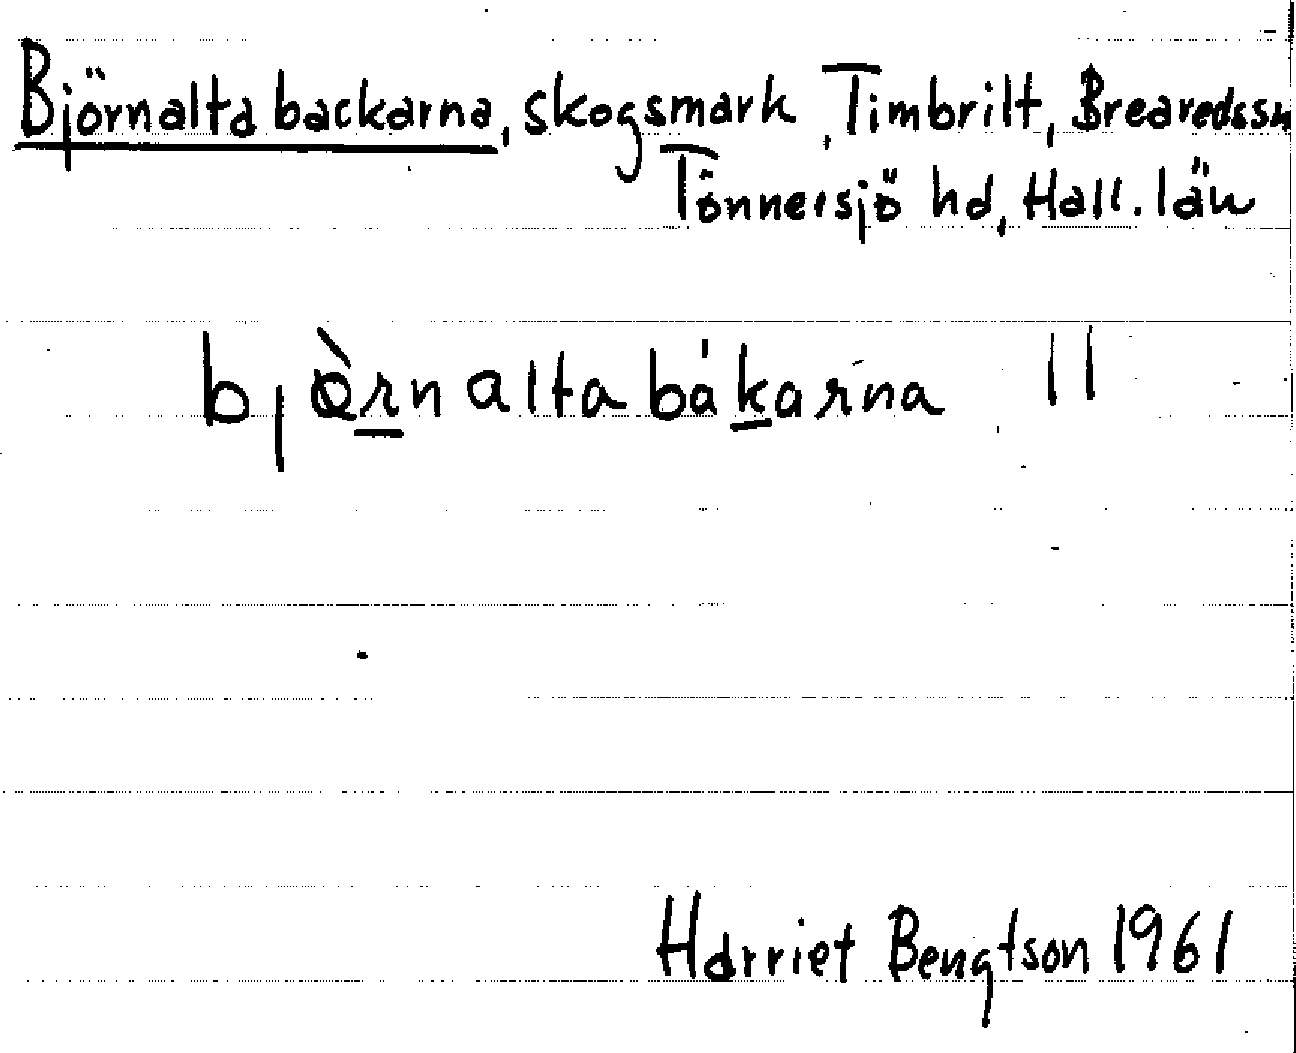 Björnalta backarna, skogsmark, Timbrilt, Brearedssn
Tönnersjö hd, Hall. län
bjö̀rnaltabákarna ||
Harriet Bengtson 1961